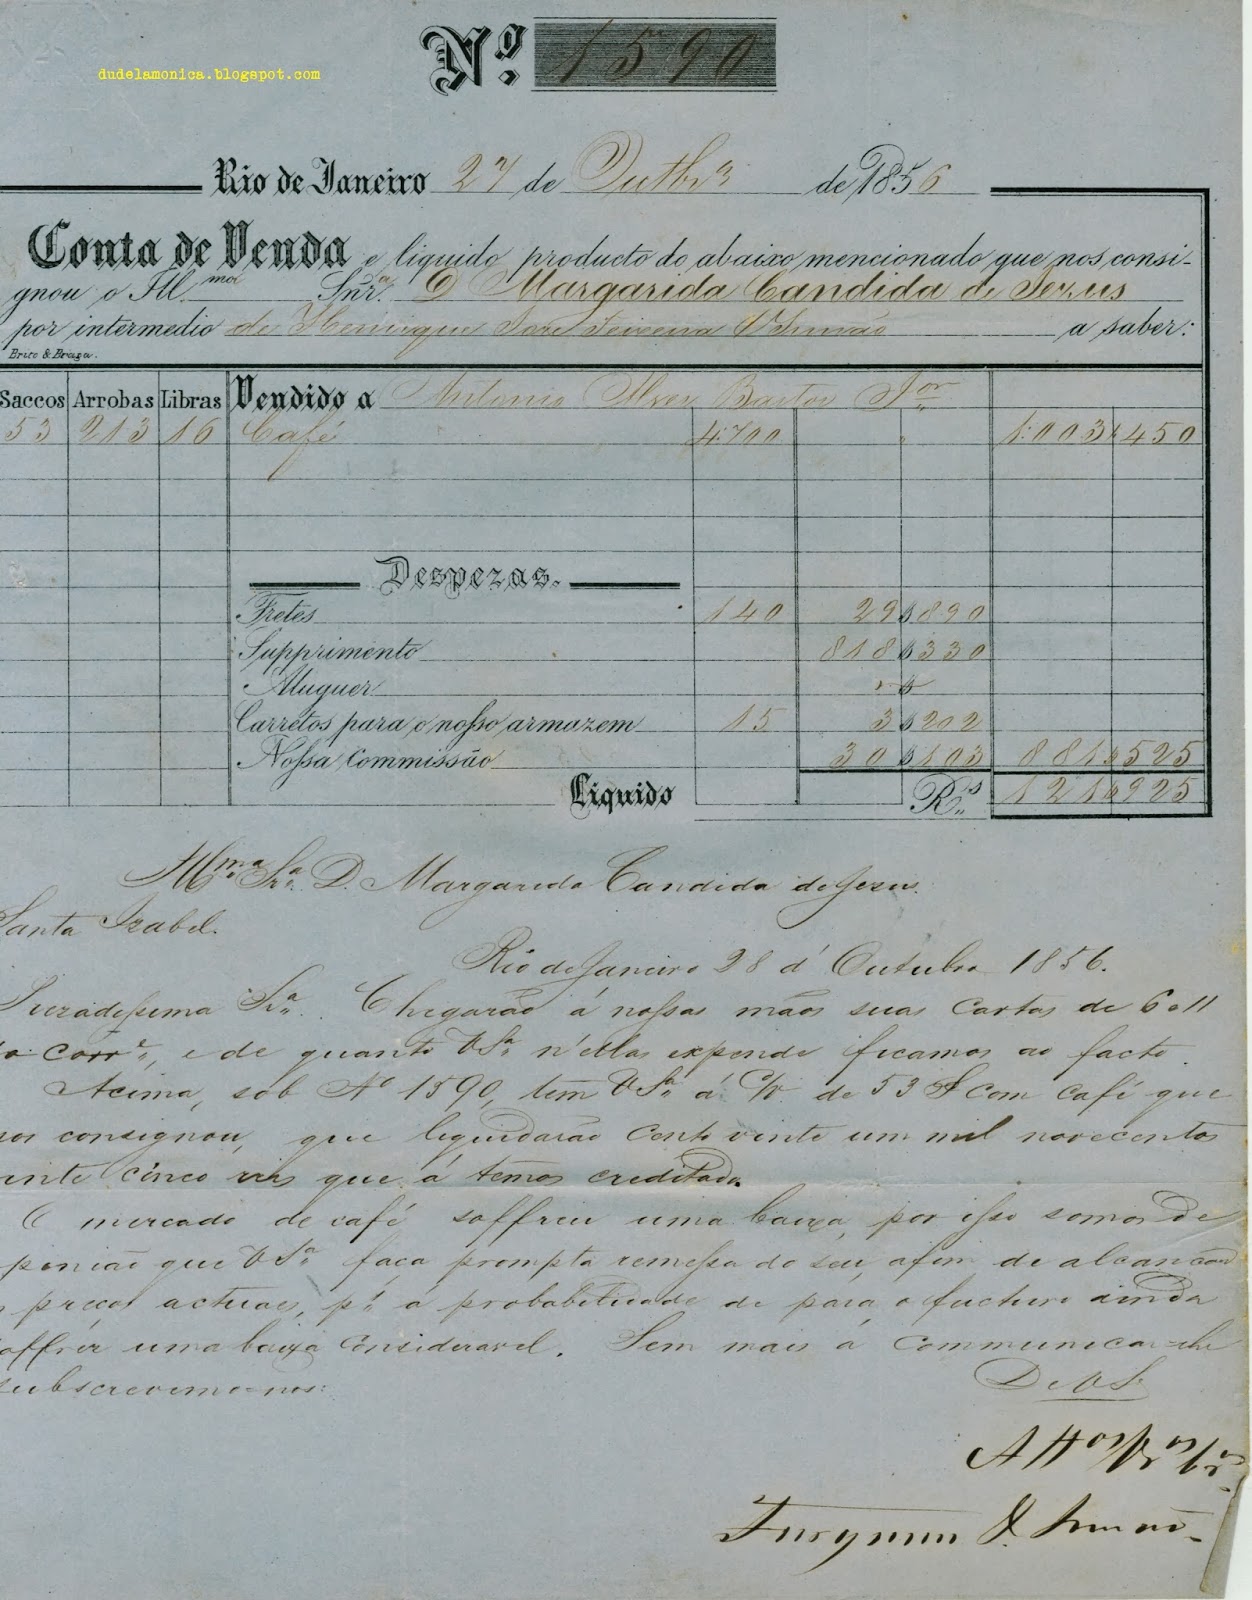 dudelamonica.blogspot.com
Nº 1590
Rio de Janeiro 27 de Outbrº de 1856
Conta de Venda e liquido producto do abaixo mencionado que nos consi-
gnou o Ill.mo Snr.a D Margarida Candida de Jezus
por intermedio de Henrique José Teixeira & Irmão a saber:
Brito & Braga.
Saccos Arrobas Libras Vendido a Antonio Alves Bastos Jor
53 213 16 Café 4700 1:003$450
Despezas.
Fretes 140 29$890
Supprimento 818$330
Aluguer $
Carretos para o nosso armazem 15 3$202
Nossa commissão 30$103 881$525
Liquido R.s 121$925
Illma Sra D. Margarida Candida de Jezus.
Santa Izabel.
Rio de Janeiro 28 d' Outubro 1856.
Prezadessima Sra. Chegarão á nossas mãos suas cartas de 6 e 11
do corre, e de quanto VSa n'ellas expende ficamos ao facto.
Acima, sob Nº 1590, tem VSa á C/V. de 53 S com café que
nos consignou, que liquidarão cento vinte um mil novecentos
vinte cinco reis que á temos creditado.
O mercado de café soffreu uma baixa, por isso somos de
openião que VSa faça prompta remessa do seu, afim de alcançar
os preços actuaes, pr a probabelidade de para o fucturo ainda
soffrer uma baixa consideravel. Sem mais á communicar-lhe
subscrevemo-nos:
De VS.
Attos
& Irmão